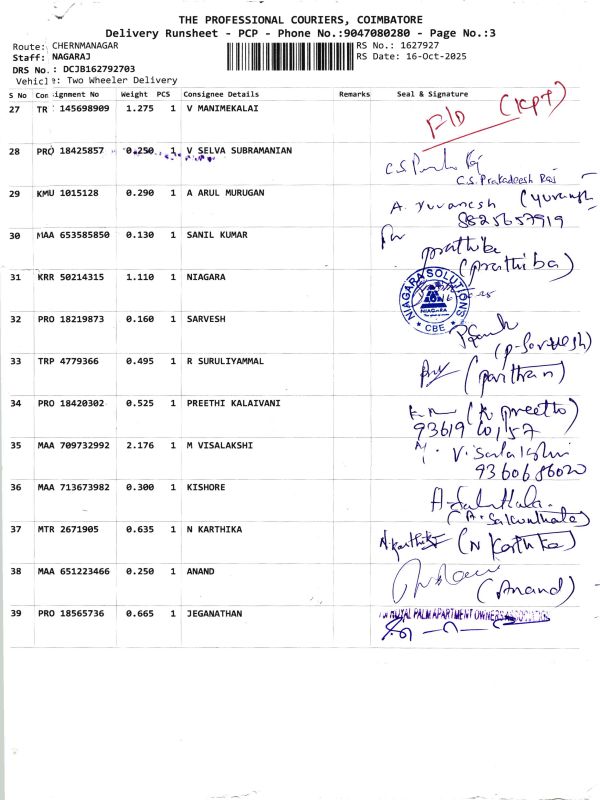 THE PROFESSIONAL COURIERS, COIMBATORE
Delivery Runsheet - PCP - Phone No.:9047080280 - Page No.:3
Route: CHERNMANAGAR RS No.: 1627927
Staff: NAGARAJ RS Date: 16-Oct-2025
DRS No.: DCJB162792703
Vehicle: Two Wheeler Delivery
S No Consignment No Weight PCS Consignee Details Remarks Seal & Signature
27 TR 145698909 1.275 1 V MANIMEKALAI F/D (KPT)
28 PRO 18425857 0.250 1 V SELVA SUBRAMANIAN
C.S. Prakadeesh Raj
29 KMU 1015128 0.290 1 A ARUL MURUGAN A. Yuvanesh
8825657919
30 MAA 653585850 0.130 1 SANIL KUMAR prathiba
(prathiba)
31 KRR 50214315 1.110 1 NIAGARA NIAGARA SOLUTIONS
NIAGARA
* CBE *
32 PRO 18219873 0.160 1 SARVESH
(P. Sarvesh)
33 TRP 4779366 0.495 1 R SURULIYAMMAL (Parithran)
34 PRO 18420302 0.525 1 PREETHI KALAIVANI (K preetho)
93619 60157
35 MAA 709732992 2.176 1 M VISALAKSHI V. Salakshi
9360686020
36 MAA 713673982 0.300 1 KISHORE
(A. Sakunthala)
37 MTR 2671905 0.635 1 N KARTHIKA N. Karthika (N Karthika)
38 MAA 651223466 0.250 1 ANAND (Anand)
39 PRO 18565736 0.665 1 JEGANATHAN ROYAL PALM APARTMENT OWNERS ASSOCIATION